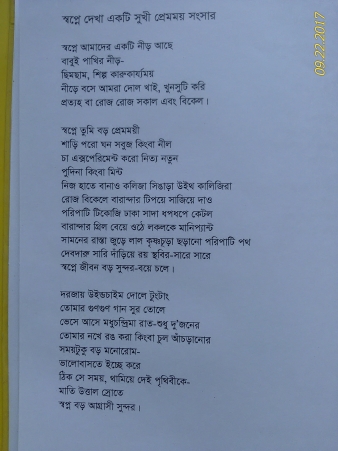 স্বপ্নে দেখা একটি সুখী প্রেমময় সংসার
09.22.2017
স্বপ্নে আমাদের একটি নীড় আছে
বাবুই পাখির নীড়-
ছিমছাম, শিল্প কারুকার্যময়
নীড়ে বসে আমরা দোল খাই, খুনসুটি করি
প্রত্যহ বা রোজ রোজ সকাল এবং বিকেল।
স্বপ্নে তুমি বড় প্রেমময়ী
শাড়ি পরো ঘন সবুজ কিংবা নীল
চা এক্সপেরিমেন্ট করো নিত্য নতুন
পুদিনা কিংবা মিন্ট
নিজ হাতে বানাও কলিজা সিঙাড়া উইথ কালিজিরা
রোজ বিকেলে বারান্দার টিপয়ে সাজিয়ে দাও
পরিপাটি টিকোজি ঢাকা সাদা ধপধপে কেটল
বারান্দার গ্রিল বেয়ে ওঠে লকলকে মানিপ্যান্ট
সামনের রাস্তা জুড়ে লাল কৃষ্ণচূড়া ছড়ানো পরিপাটি পথ
দেবদারু সারি দাঁড়িয়ে রয় স্থবির-সারে সারে
স্বপ্নে জীবন বড় সুন্দর-বয়ে চলে।
দরজায় উইন্ডচাইম দোলে টুংটাং
তোমার গুণগুণ গান সুর তোলে
ভেসে আসে মধুচন্দ্রিমা রাত-শুধু দু'জনের
তোমার নখে রঙ করা কিংবা চুল আঁচড়ানোর
সময়টুকু বড় মনোরোম-
ভালোবাসতে ইচ্ছে করে
ঠিক সে সময়, থামিয়ে দেই পৃথিবীকে-
মাতি উত্তাল স্রোতে
স্বপ্ন বড় আগ্রাসী সুন্দর।